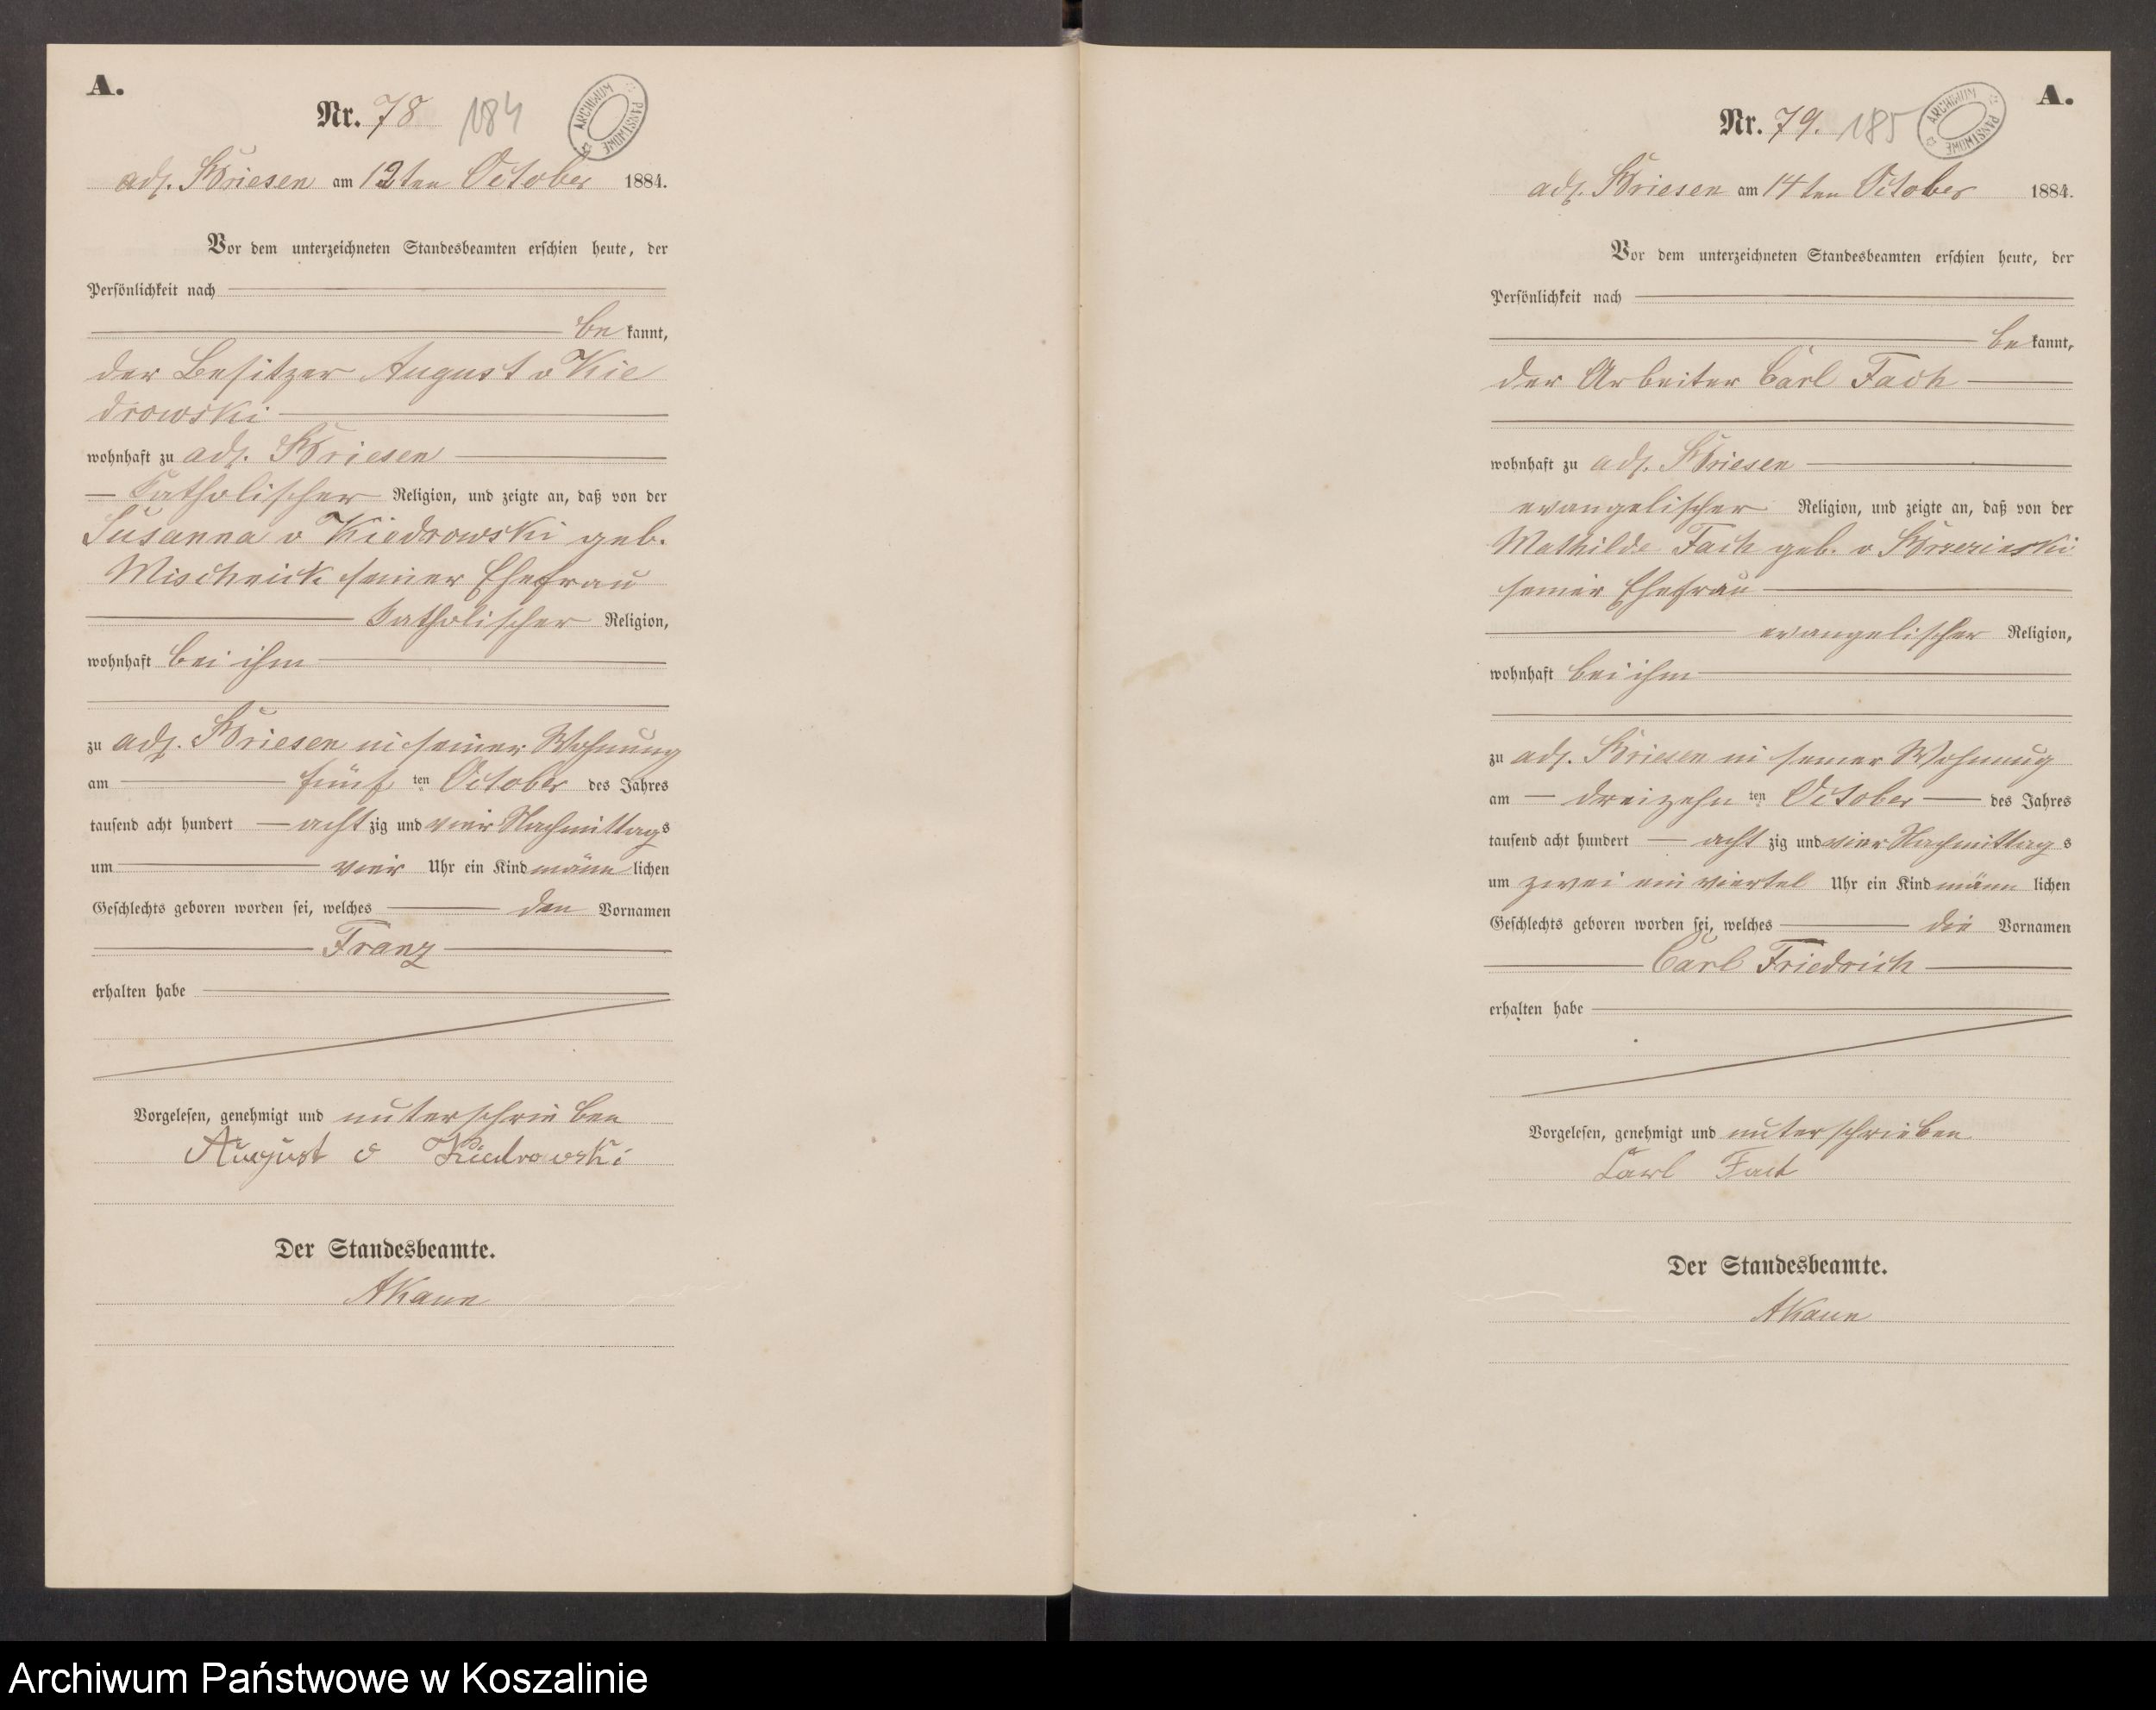 A.
Nr. 78 184
ARCHIWUM PAŃSTWOWE
adl. Briesen am 12ten October 1884.
Vor dem unterzeichneten Standesbeamten erschien heute, der
Persönlichkeit nach
be kannt,
der Besitzer August v Kie
drowski
wohnhaft zu adl. Briesen
katholischer Religion, und zeigte an, daß von der
Susanna v Kiedrowski geb.
Mischnick seiner Ehefrau
katholischer Religion,
wohnhaft bei ihm
zu adl. Briesen in seiner Wohnung
am fünf ten October des Jahres
tausend acht hundert acht zig und vier Nachmittags
um vier Uhr ein Kind männ lichen
Geschlechts geboren worden sei, welches den Vornamen
Franz
erhalten habe
Vorgelesen, genehmigt und unterschrieben
August v Kiedrowski
Der Standesbeamte.
A.
Nr. 79. 185
ARCHIWUM PAŃSTWOWE
adl. Briesen am 14ten October 1884.
Vor dem unterzeichneten Standesbeamten erschien heute, der
Persönlichkeit nach
be kannt,
der Arbeiter Carl Fach
wohnhaft zu adl. Briesen
evangelischer Religion, und zeigte an, daß von der
Mathilde Fach geb. v
seiner Ehefrau
evangelischer Religion,
wohnhaft bei ihm
zu adl. Briesen in seiner Wohnung
am dreizehn ten October des Jahres
tausend acht hundert acht zig und vier Nachmittag s
um zwei ein viertel Uhr ein Kind männ lichen
Geschlechts geboren worden sei, welches die Vornamen
Carl Friedrich
erhalten habe
Vorgelesen, genehmigt und unterschrieben
Carl Fach
Der Standesbeamte.
Archiwum Państwowe w Koszalinie